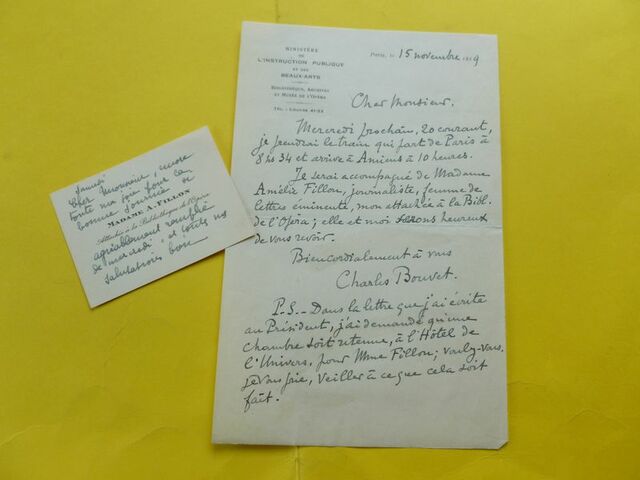 MINISTÈRE
DE
L'INSTRUCTION PUBLIQUE
ET DES
BEAUX-ARTS
BIBLIOTHÈQUE, ARCHIVES
ET MUSÉE DE L'OPÉRA
TÉL. : LOUVRE
Paris, le 15 novembre 19
Cher Monsieur.
Mercredi prochain, 20 courant,
je prendrai le train qui part de Paris à
8hs 34 et arrive à Amiens à 10 heures.
Je serai accompagné de Madame
Amélie Fillon, journaliste, femme de
lettres éminente, mon attachée à la Bibl.
de l'Opéra; elle et moi serons heureux
de vous revoir.
Bien cordialement à vous
Charles Bouvet.
P.S._ Dans la lettre que j'ai écrite
au Président, j'ai demandé qu'une
chambre soit retenue, à l'Hôtel de
l'Univers, pour Mme Fillon; voulez-vous,
je vous prie, veiller à ce que cela soit
fait.
Samedi
Cher Monsieur, encore
toute ma joie pour la
bonne journée si
MADAME A. FILLON
Attachée à la Bibliothèque de l'Opéra
agréablement remplie
de mercredi et toutes nos
salutations